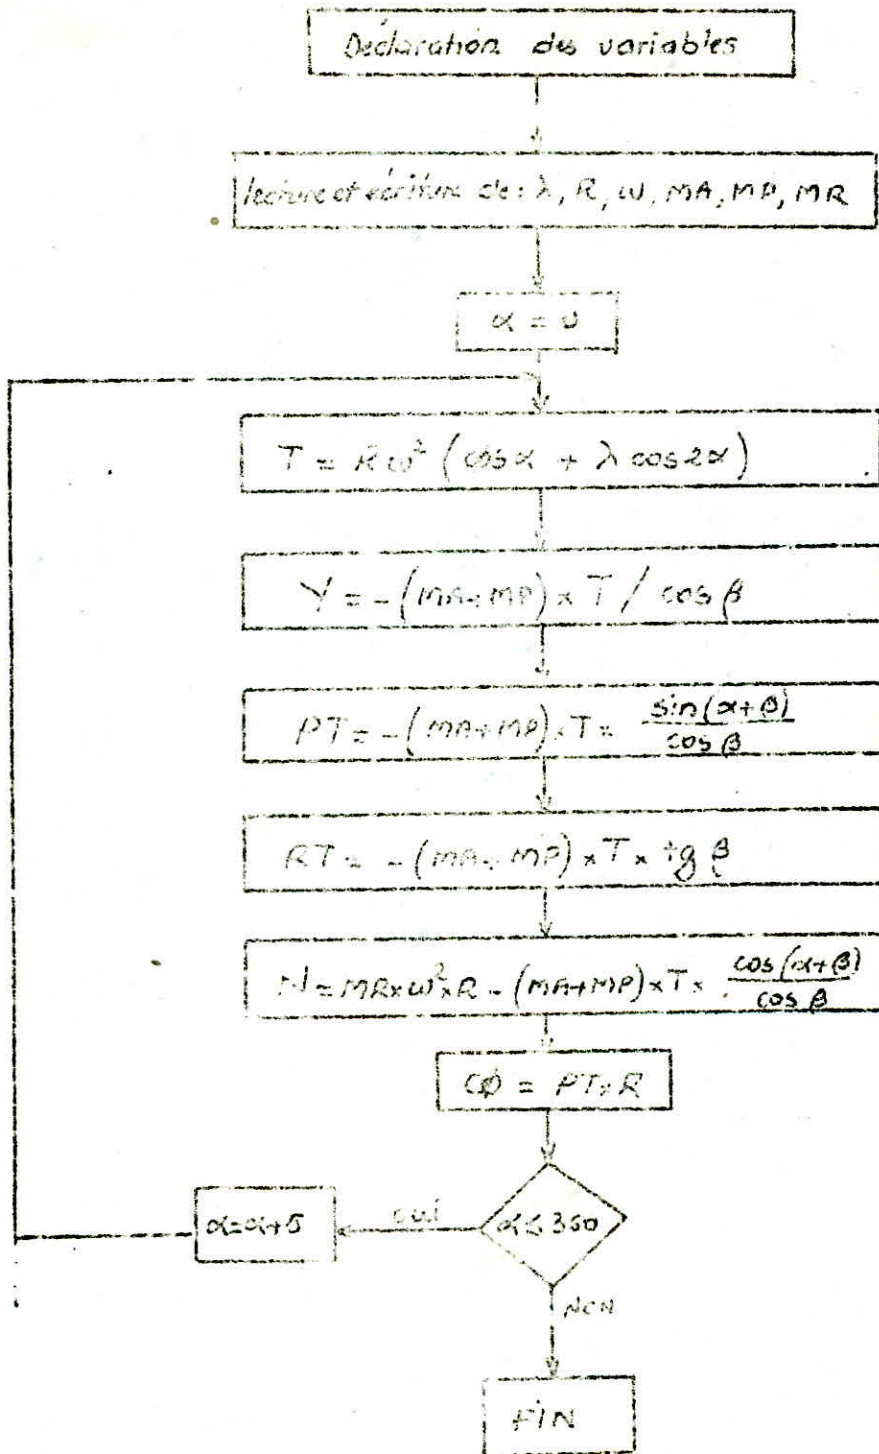 Déclaration des variables
lecture et écriture de: λ, R, ω, MA, MP, MR
α = 0
T = Rω² (cosα + λ cos2α)
Y = -(MA+MP) × T / cos β
PT = -(MA+MP) × T × sin(α+β) / cos β
RT = -(MA+MP) × T × tg β
N = MR×ω²×R - (MA+MP) × T × cos(α+β) / cos β
CØ = PT × R
α=α+5
oui
α ≤ 360
NON
FIN